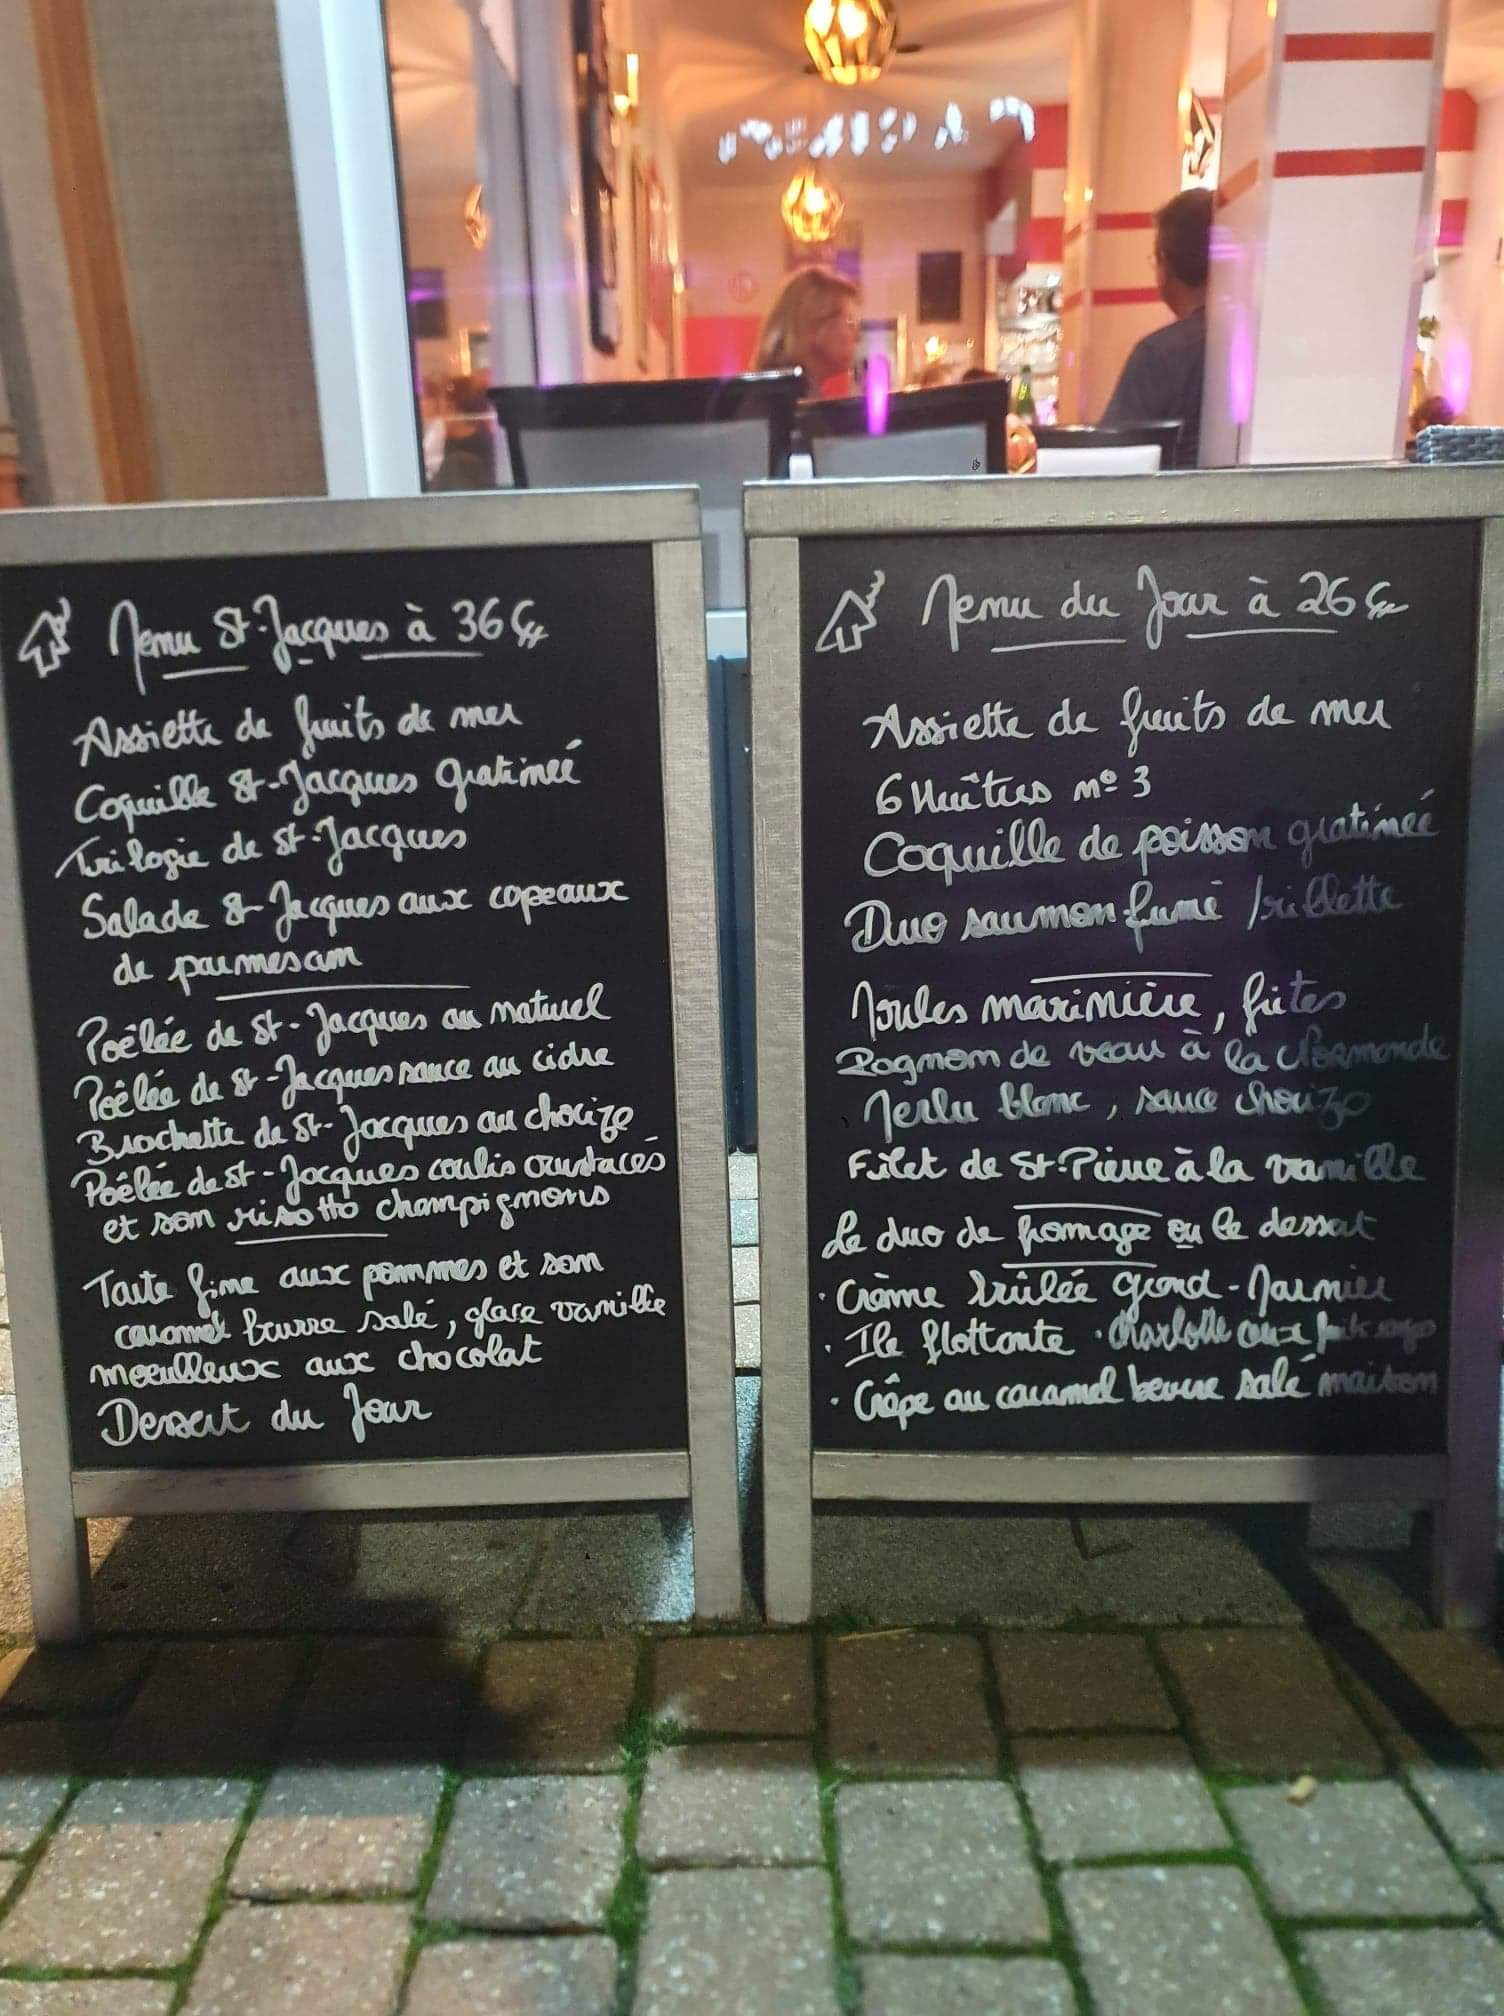 Menu St-Jacques à 36 €
Assiette de fruits de mer
Coquille St-Jacques gratinée
Trilogie de St-Jacques
Salade St-Jacques aux copeaux
de parmesan
Poêlée de St-Jacques au naturel
Poêlée de St-Jacques sauce au cidre
Brochette de St-Jacques au chorizo
Poêlée de St-Jacques coulis crustacés
et son risotto champignons
Tarte fine aux pommes et son
caramel beurre salé, glace vanille
moeulleux aux chocolat
Dessert du Jour
Menu du Jour à 26 €
Assiette de fruits de mer
6 Huîtres n° 3
Coquille de poisson gratinée
Duo saumon fumé / rillette
Moules marinière, frites
Rognon de veau à la Normande
Merlu blanc, sauce chorizo
Filet de St-Pierre à la vanille
Le duo de fromage ou le dessert
· Crème brûlée grand-Marnier
· Ile flottante · Charlotte aux
· Crêpe au caramel beurre salé maison